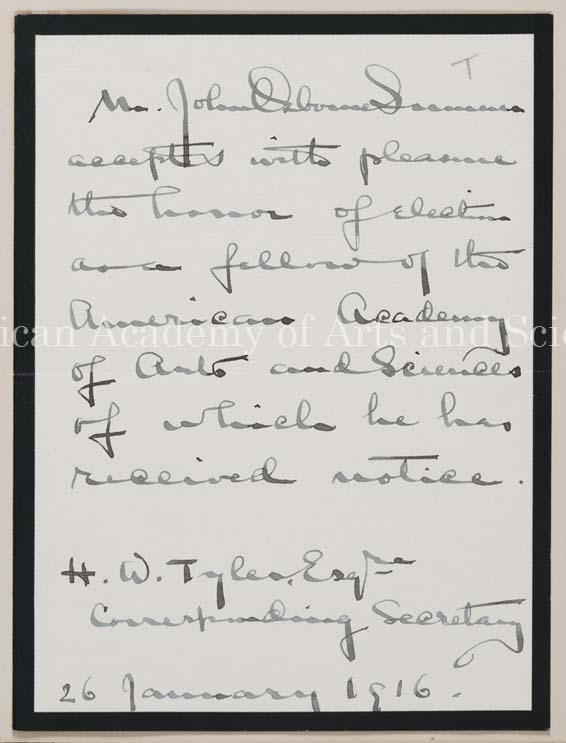 T
Mr. John Osborne Sumner
accepts with pleasure
the honor of election
as a fellow of the
American Academy
ican Academy of Arts and Scie
of Arts and Sciences
of which he has
received notice.
H. W. Tyler, Esqre
Corresponding Secretary
26 January 1916.